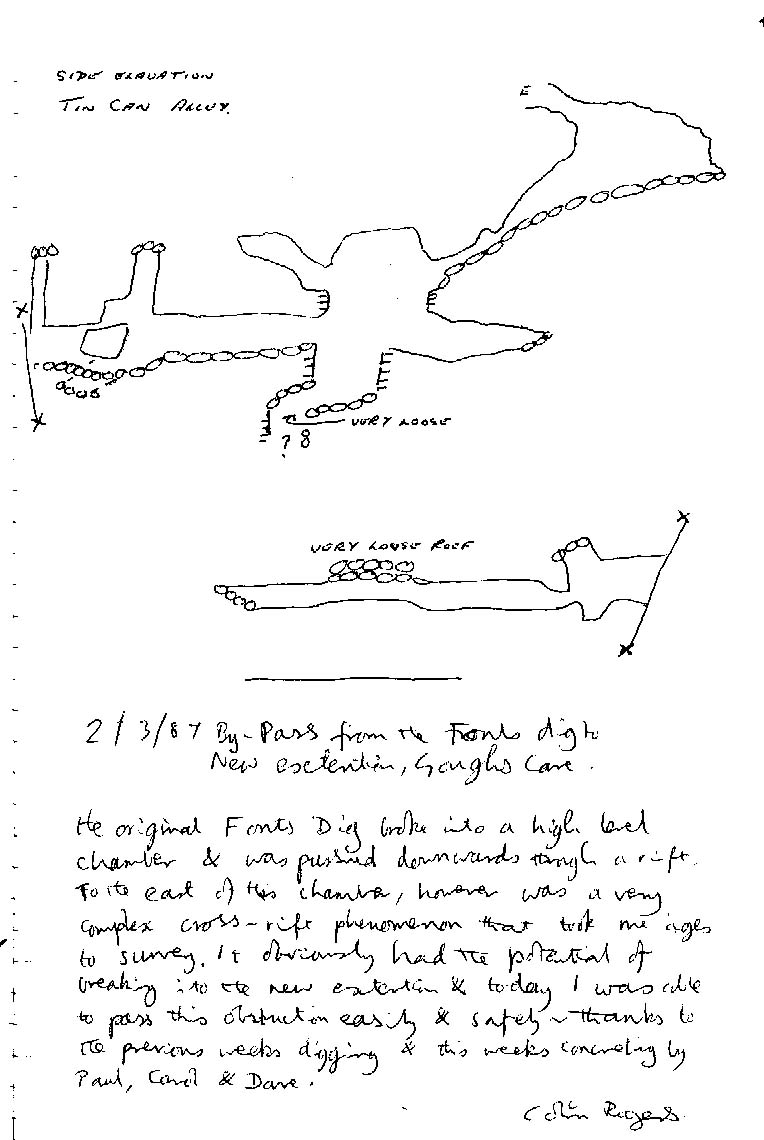 SIDE ELAVATION
TIN CAN ALLEY.
E
VERY LOOSE
? 8
VERY LOOSE ROOF
2/3/87 By-Pass from the Fonts dig to
New exetention, Goughs Cave.
The original Fonts Dig broke into a high level
chamber & was pushed downwards through a rift.
To the east of this chamber, however was a very
complex cross-rift phenomenon that took me ages
to survey. It obviously had the potential of
breaking into the new extention & today I was able
to pass this obstruction easily & safely - thanks to
the previous weeks digging & this weeks concreting by
Paul, Carol & Dave.
Colin Rogers